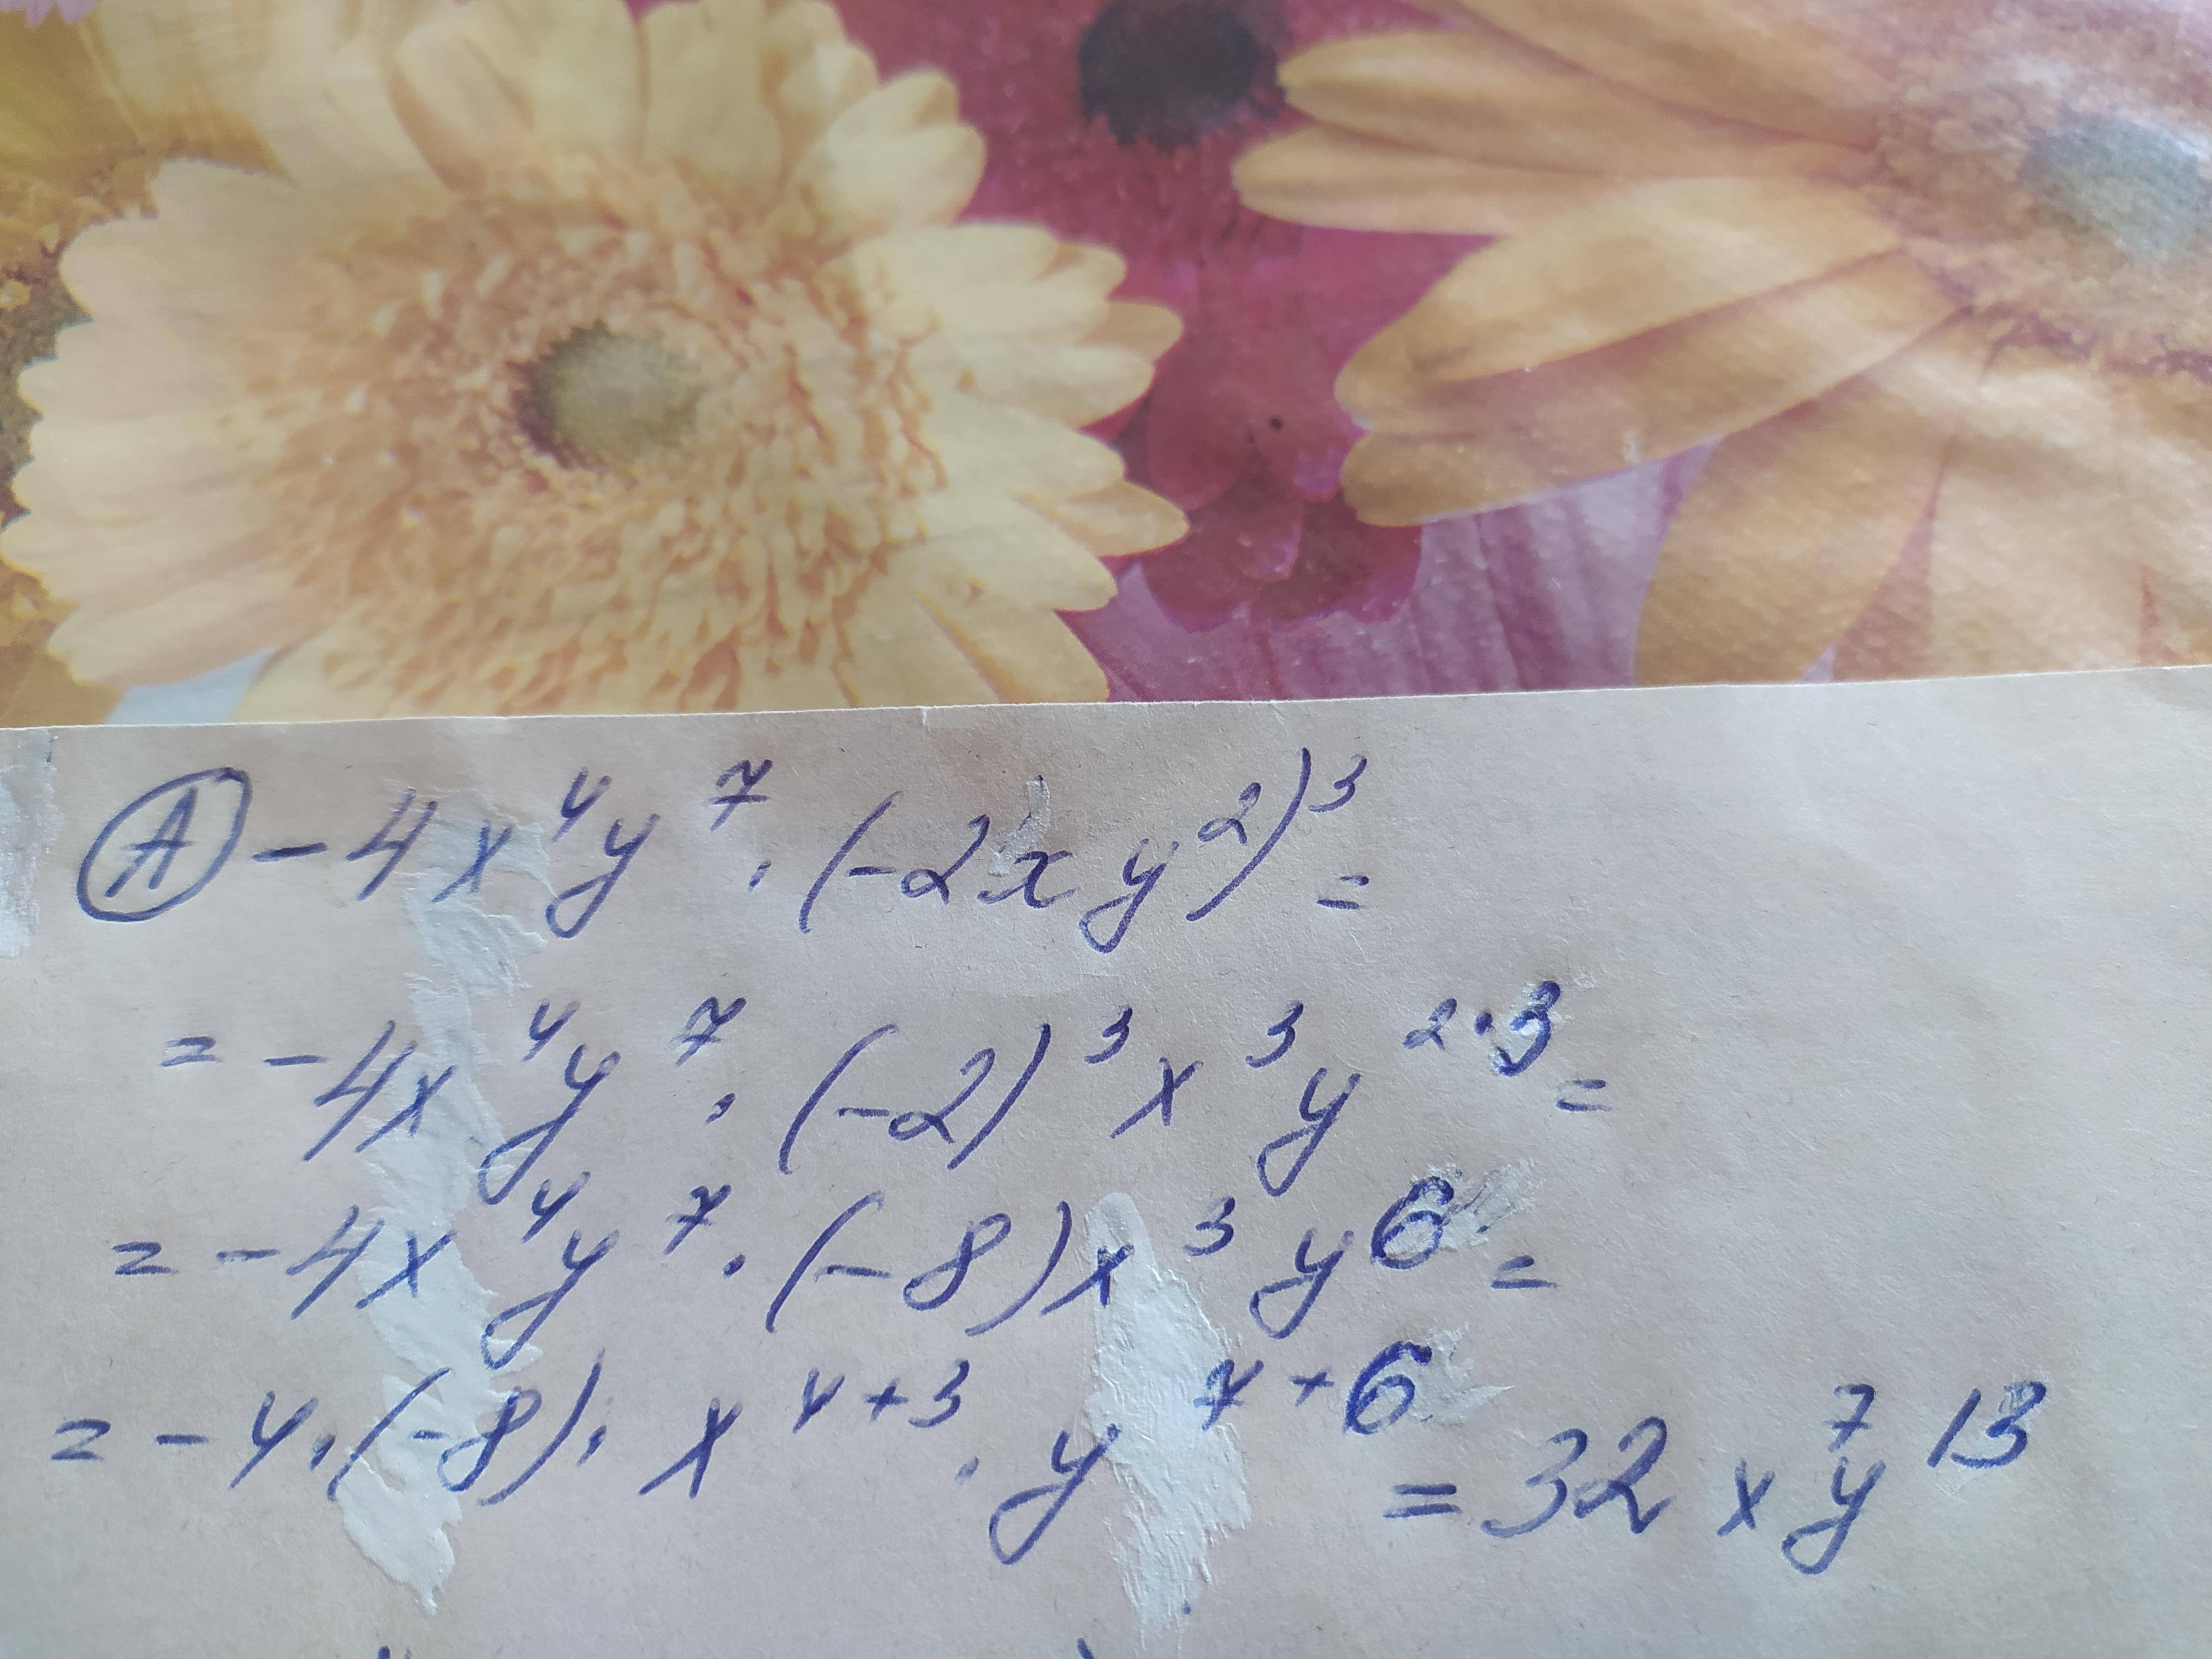 А -4x⁴y⁷·(-2xy²)³=
=-4x⁴y⁷·(-2)³x³y²·³=
=-4x⁴y⁷·(-8)x³y⁶=
=-4·(-8)·x⁴⁺³·y⁷⁺⁶=32x⁷y¹³